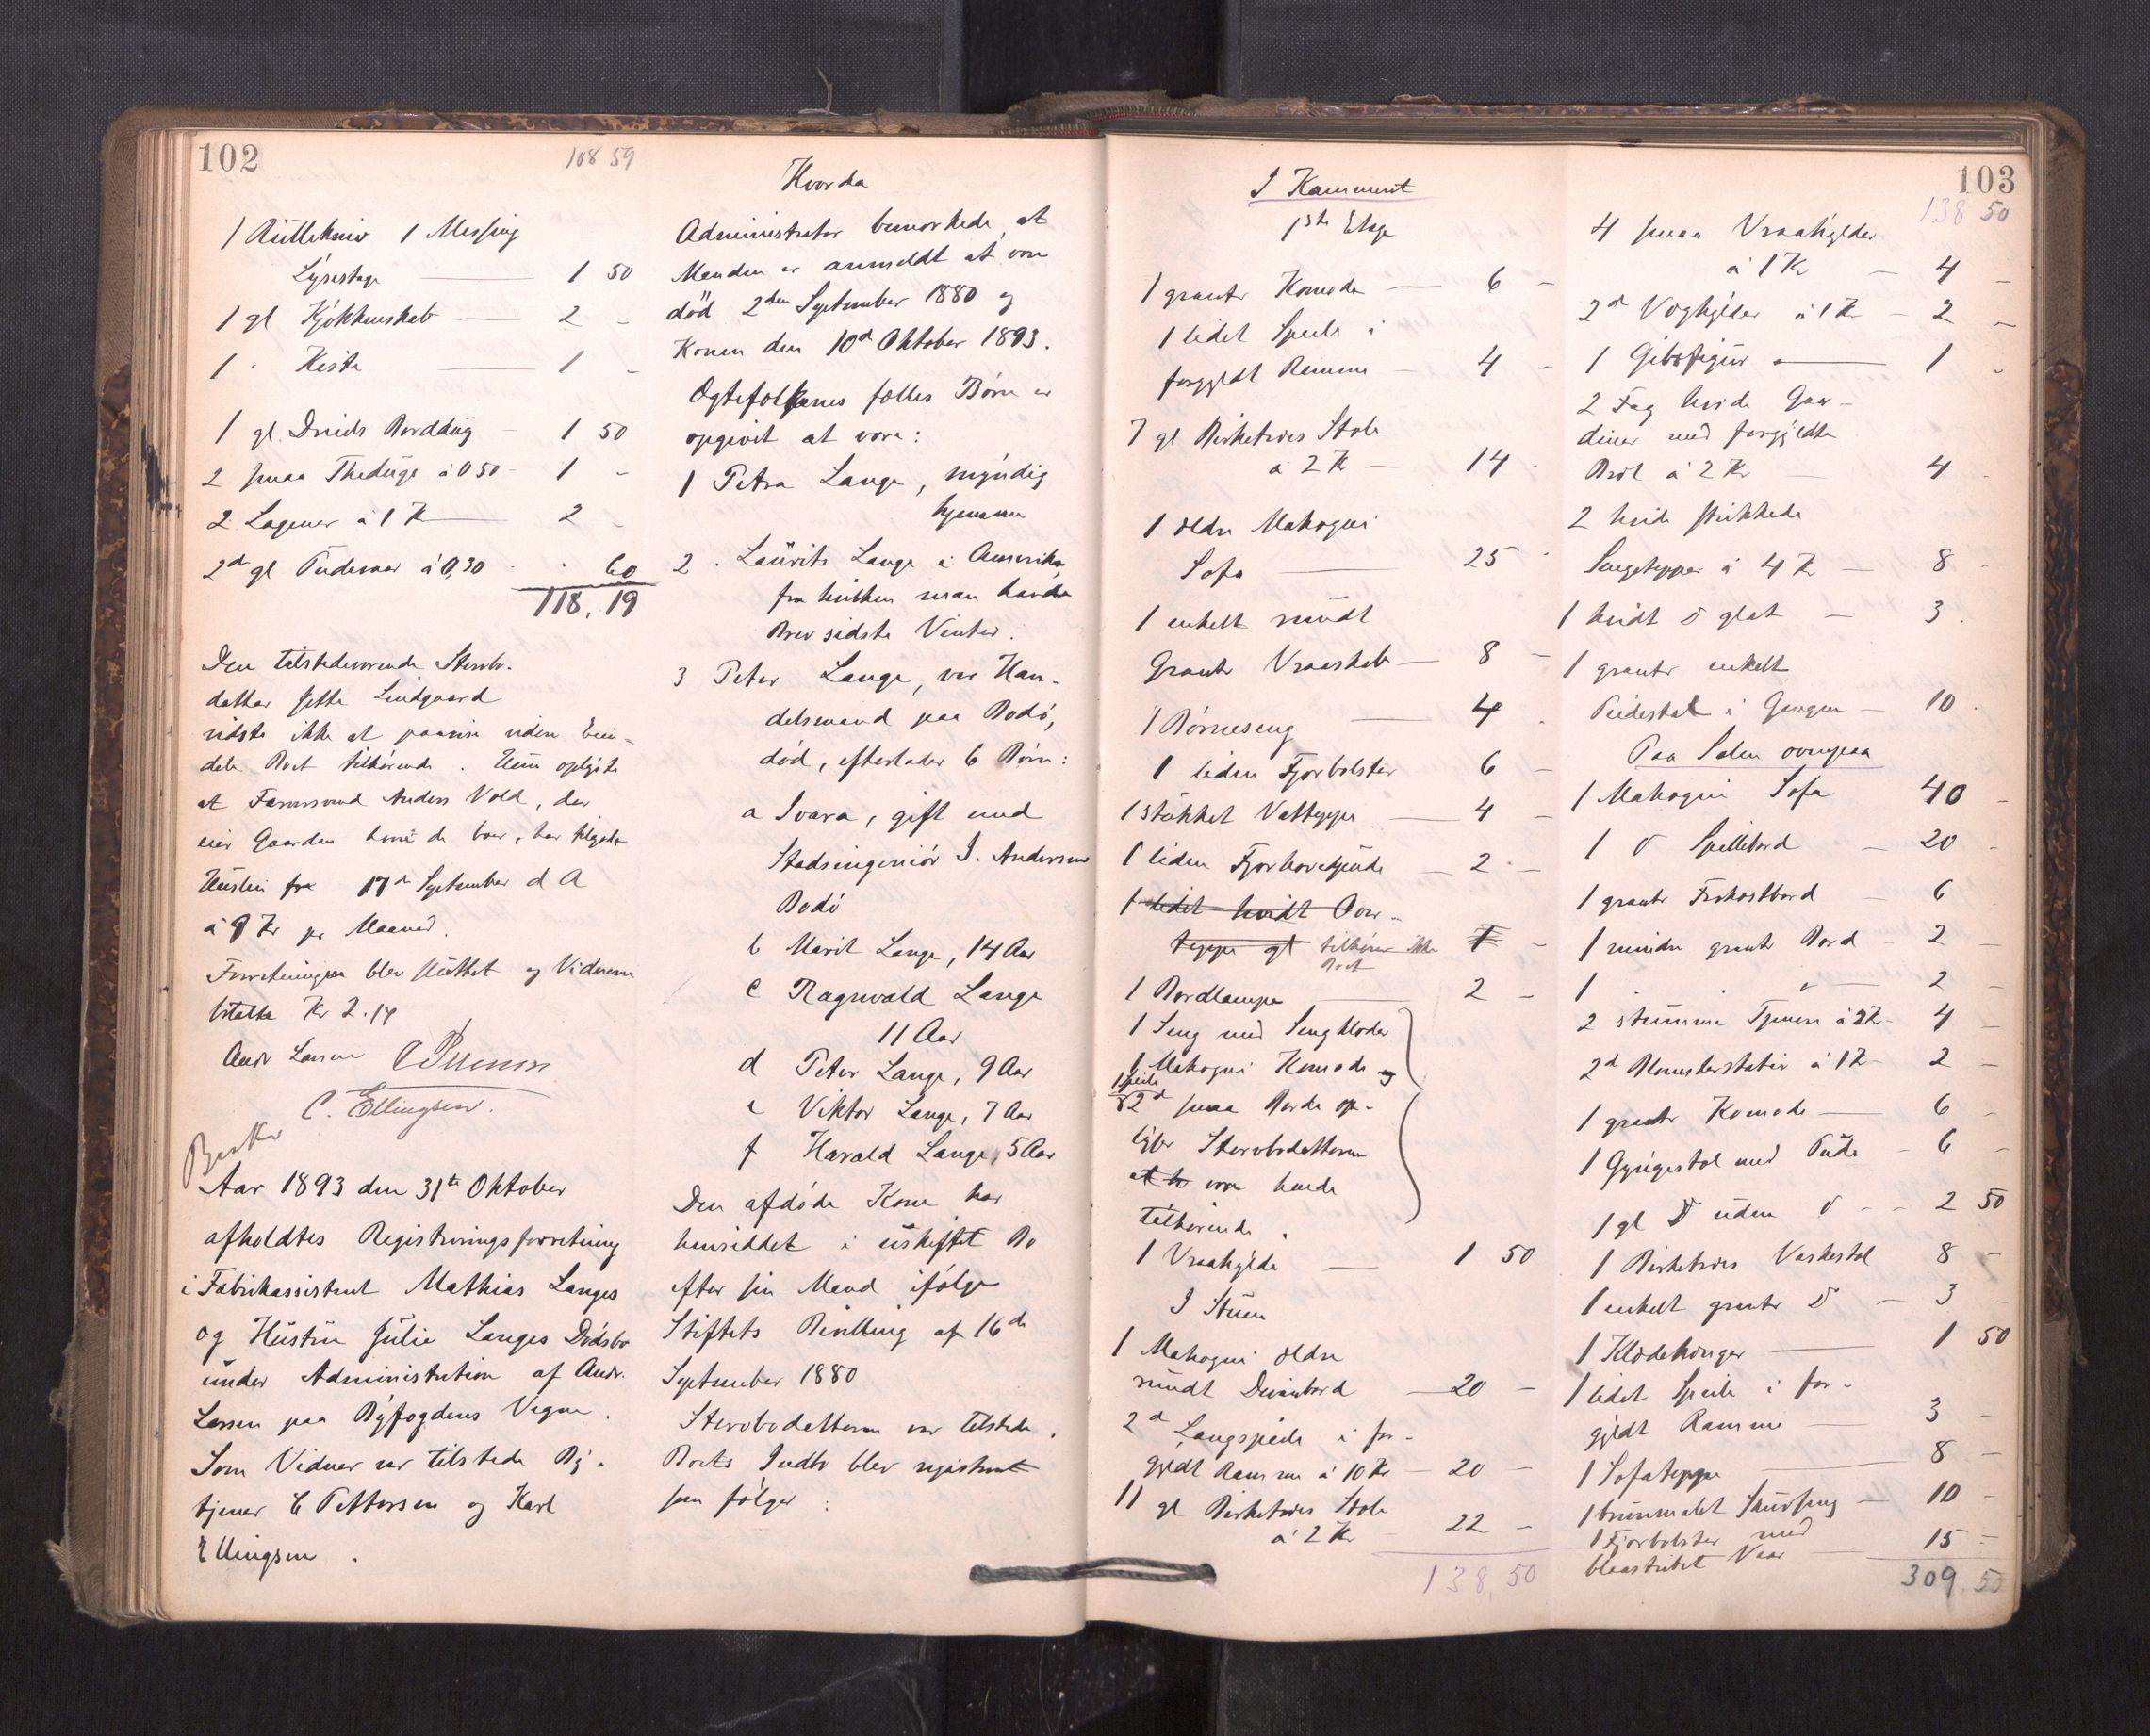 102
108 59
1 Rullekniv 1 Messing
Lysestage 1 50
1 gl Kjøkkenskab 2 -
1 " Kiste 1 -
1 gl. Dreils Borddug 1 50
2 smaa Theduge à 0 50 1 -
2 Lagener à 1 Kr 2 -
2 do gl Pudevar à 0,30 " 60
118,19
Den tilstedeværende Stervb.
datter Jette Lindgaard
vidste ikke at paavise videre Eien-
dele Boet tilhørende. Hun oplyste
at Formand Anders Vold, der
eier Gaarden hvori de bor, har tilgode
Husleie fra 17d September d A
à 9 Kr pr Maaned.
Forretningen blev sluttet og Vidnerne
betalte Kr 2.14
Andr Larsen C Pettersen
C. Ellingsen.
Besk
Aar 1893 den 31te Oktober
afholdtes Registreringsforretning
i Fabrikassistent Mathias Langes
og Hustru Julie Langes Dødsbo
under Administration af Andr.
Larsen paa Byfogdens Vegne.
Som Vidner var tilstede By-
tjener C Pettersen og Karl
Ellingsen.
Hvorda
Administrator bemærkede, at
Manden er anmeldt at være
død 2den September 1880 og
Konen den 10d Oktober 1893.
Ægtefolkenes fælles Børn er
opgivet at være:
1 Petra Lange, myndig
hjemme
2. Laurits Lange i Amerika,
fra hvilken man havde
Brev sidste Vinter.
3 Peter Lange, var Han-
delsmand paa Bodø,
død, efterlader 6 Børn:
a Svava, gift med
Stadsingeniør J. Andersen
Bodø
b Marit Lange, 14 Aar
c Ragnvald Lange
11 Aar
d Peter Lange, 9 Aar
e Viktor Lange, 7 Aar
f Harald Lange, 5 Aar
Den afdøde Kone har
hensiddet i uskiftet Bo
efter sin Mand ifølge
Stiftets Bevilling af 16de
September 1880
Stervbodatteren var tilstede.
Boets Indbo blev registreret
som følger:
103
I Kammeret
1ste Etage
1 graate Komode 6 -
1 lidet Speile i
forgyldt Ramme 4 -
7 gl Birketræes Stole
à 2 Kr 14 -
1 ældre Mahogni
Sofa 25 -
1 enkelt rundt
Graate Vraaskab 8 -
1 Børneseng 4 -
1 liden Fjørbolster 6 -
1 stukket Vatteppe 4 -
1 liden Fjørhovedpude 2 -
1 lidet hvidt Over-
teppe gl tilhører ikke Boet 1 -
1 Bordlampe 2 -
1 Seng med Sengklæder
1 Mahogni Komode og
1 speile
& 2d smaa Borde op-
lyser Stervbodatteren
at h være hende
tilhørende.
1 Vraahylde 1 50
I Stuen
1 Mahogni ældre
rundt Divanbord 20 -
2d Langspeile i for-
gyldt Ramme à 10 Kr 20 -
11 gl Birketræes Stole
à 2 Kr 22 -
138,50
138 50
4 smaa Vraahylder
à 1 Kr 4 -
2d Væghylder à 1 Kr 2 -
1 Gibsfigur 1 -
2 Fag hvide Gar-
diner med forgyldte
Bræt à 2 Kr 4 -
2 hvide strikkede
Sengetepper à 4 Kr 8 -
1 hvidt do glat 3 -
1 graate enkelt
Piedestal i Gangen 10 -
Paa Salen ovenpaa
1 Mahogni Sofa 40 -
1 do Spillebord 20 -
1 graate Frokostbord 6
1 mindre graate Bord 2 -
1 " " 2 -
2 stumme Tjenere à 2 Kr 4 -
2d Blomsterstativ à 1 Kr 2 -
1 graate Komode 6 -
1 Gyngestol med Pude 6 -
1 gl do uden do 2 50
1 Birketræes Vaskestol 8 -
1 enkelt graate do 3 -
1 Klædehænger 1 50
1 lidet Speile i for-
gyldt Ramme 3 -
1 Sofateppe 8 -
1 brunmalet Skuvseng 10 -
1 Fjørbolster med
blaastribet Vaar 15 -
309,50